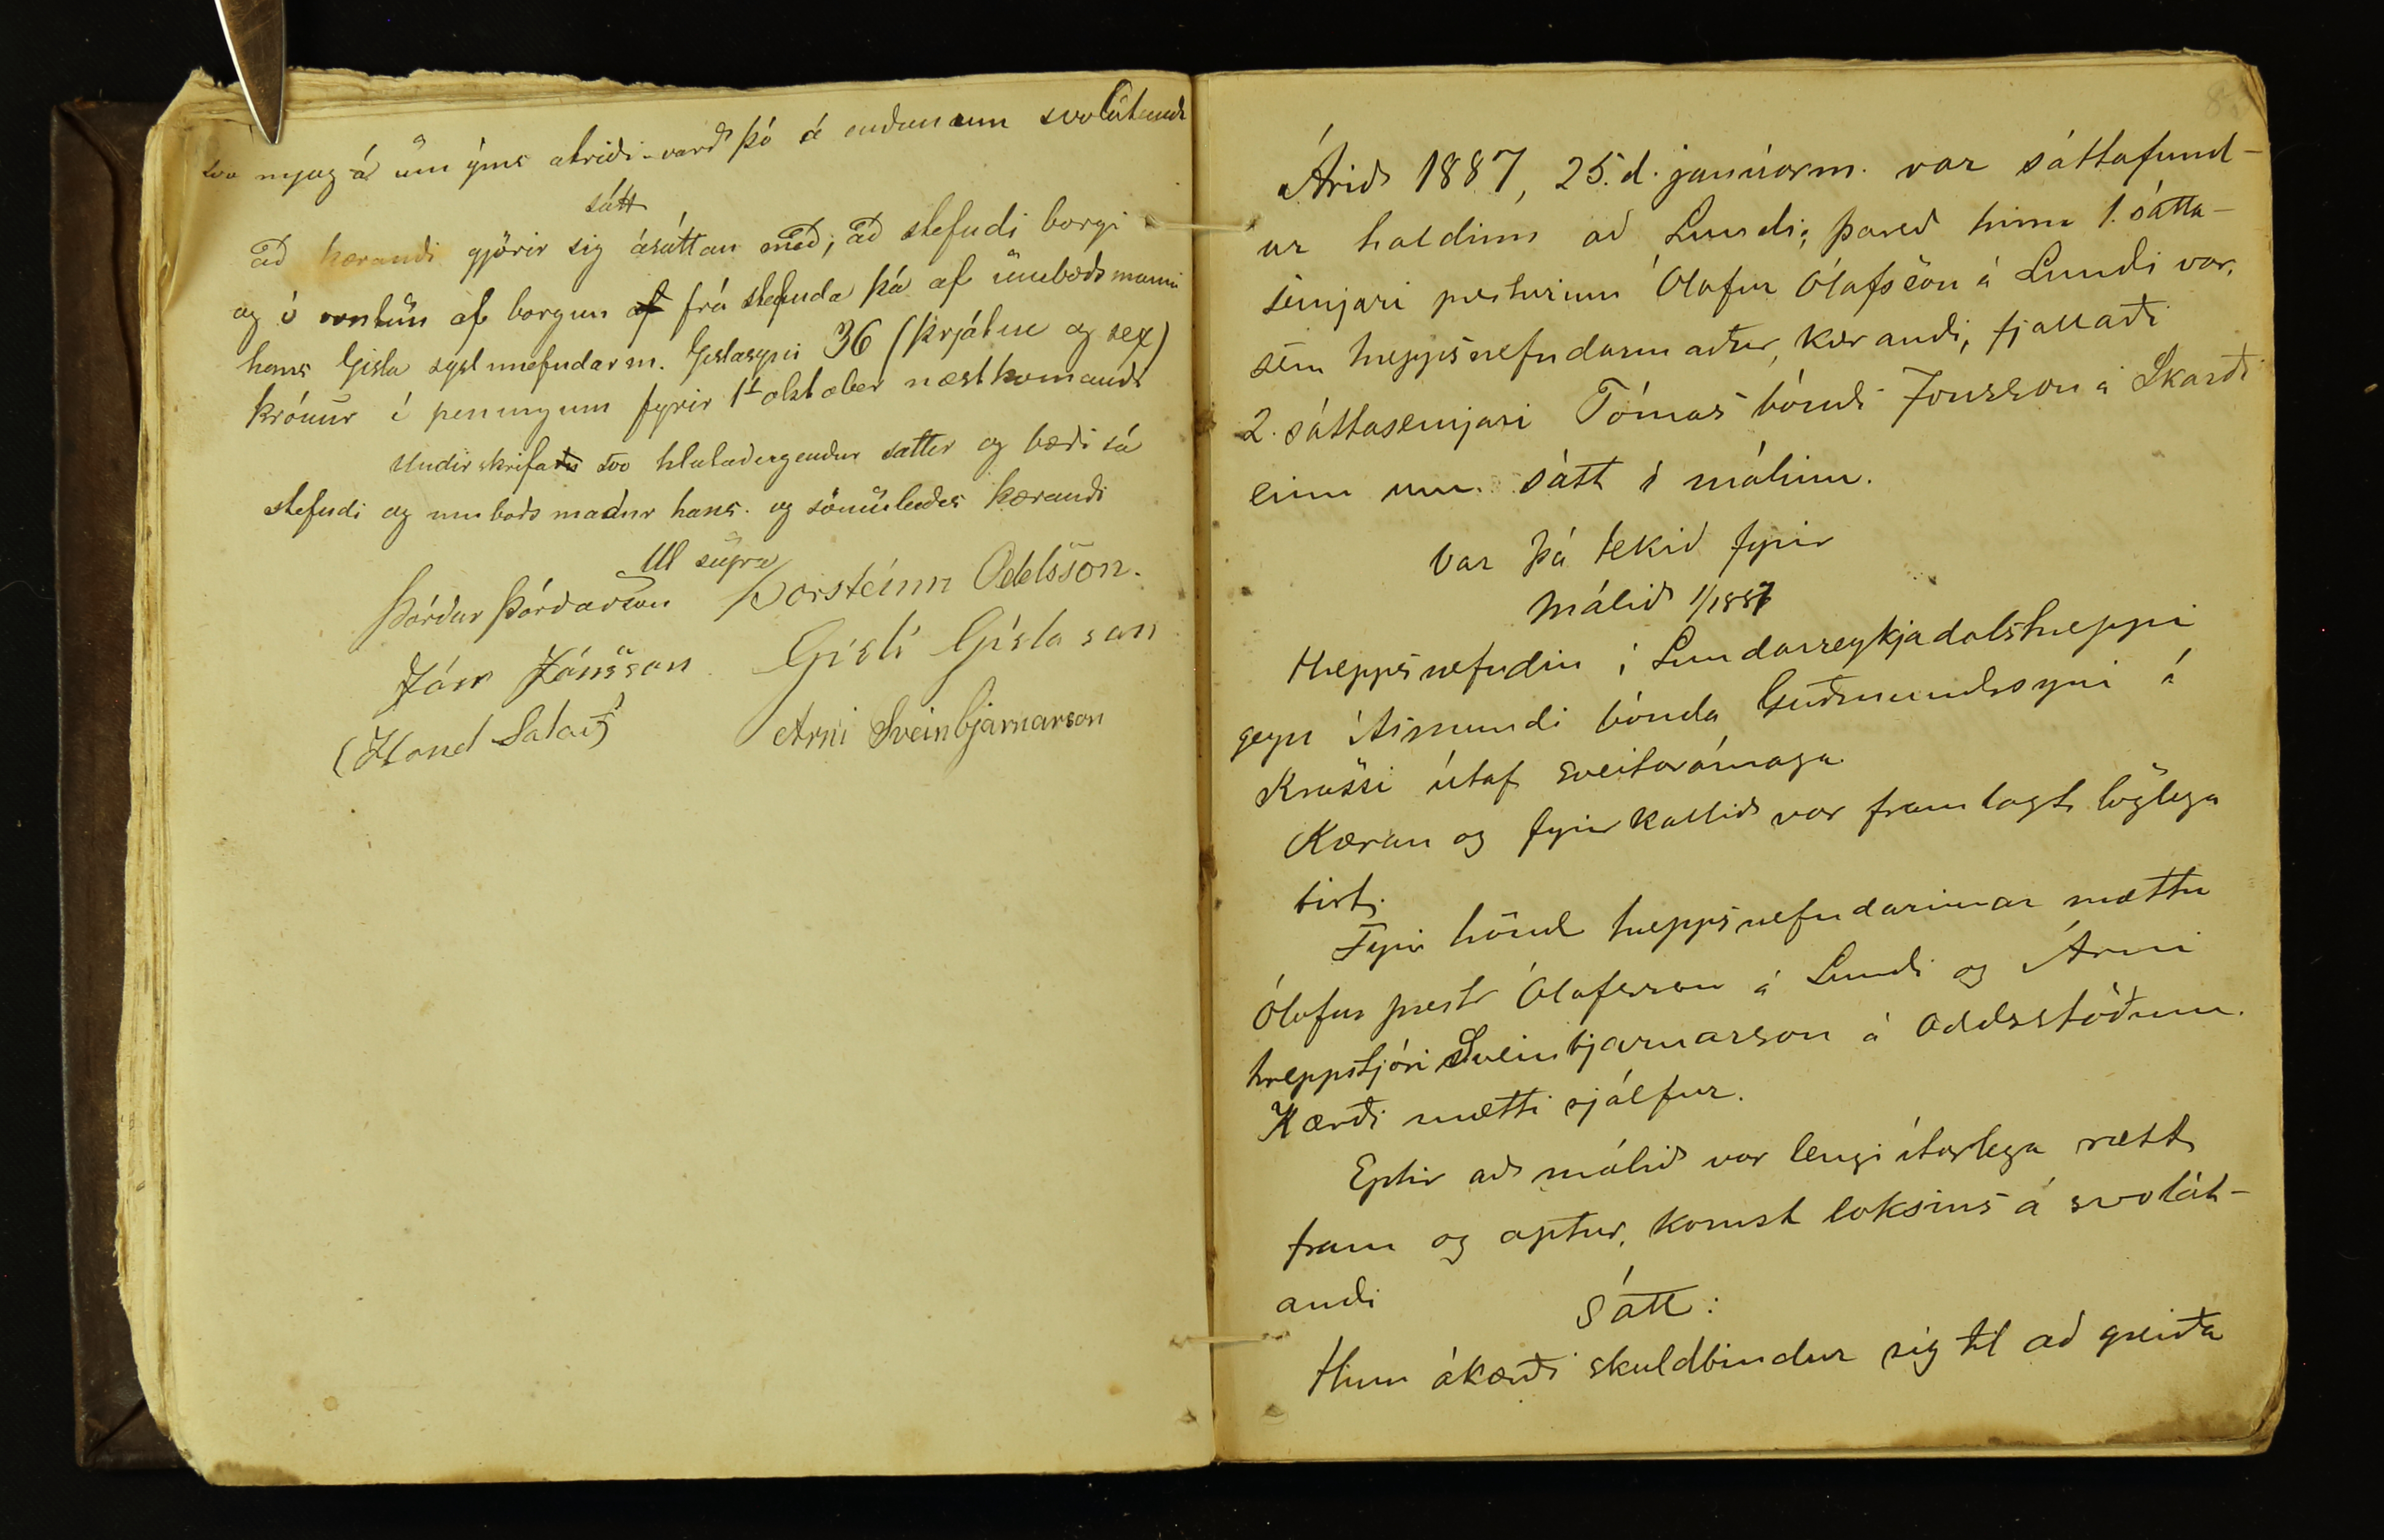 svo mjög á um ýms atriði - varð þó á endanum svolátandi
sátt
að kærandi gjörir sig ásáttan með, að stefndi borgi
og í vöntun af borgun af frá stefnda þá af umboðsmanni
hans Gísla sýslunefndarm. Gíslasyni 36 (þrjátíu og sex)
krónur í peningum fyrir 1. október næstkomandi
Undirskrifa svo hlutaðeigendur sáttir og bæði sá
stefndi og umboðsmaður hans. og sömuleiðis kærandi
Ut supra
Þórður Þórðarson Þorsteinn Oddsson.
Jón Jónsson Gísli Gíslason
(Hand Salað) Arni Sveinbjarnarson
Árið 1887, 25. d. janúarm. var sáttafund-
ur haldinn að Lundi; þareð hinn 1. sátta-
semjari presturinn Ólafur Ólafsson á Lundi var,
sem hreppsnefndarmaður, kærandi, fjallaði
2. sáttasemjari Tómas bóndi Jonsson á Skarði
einn um sátt í málinu.
Var þá tekið fyrir
Málið 1/1887
Hreppsnefndin í Lundarreykjadalshreppi
gegn Ásmundi bónda Guðmundssyni á
Krossi útaf sveitarómaga.
Kæran og fyrirkallið var framlagt löglega
birt.
Fyrir hönd hreppsnefndarinnar mættu
Ólafur prestr Ólafsson á Lundi og Árni
hreppstjóri Sveinbjarnarson á Oddsstöðum.
Kærði mætti sjálfur.
Eptir að málið var lengi ítarlega rætt
fram og aptur, komst loksins á svolát-
andi
Sátt:
Hinn ákærði skuldbindur sig til að greiða